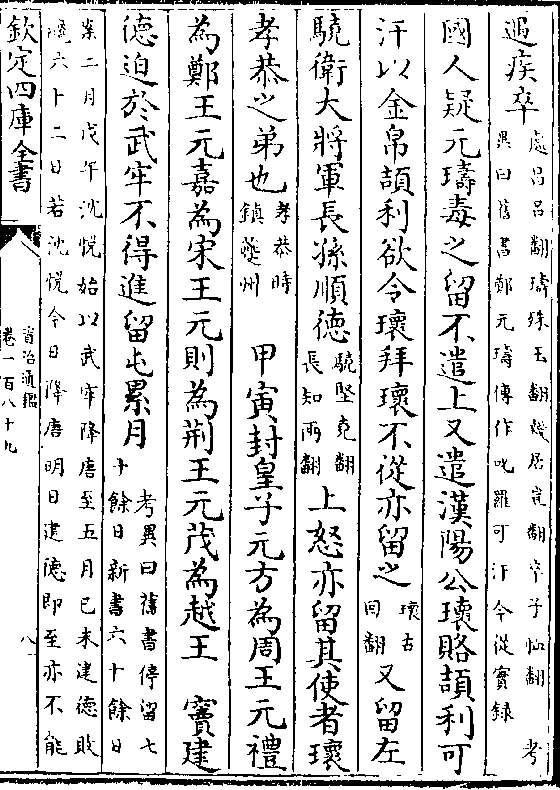 遇疾卒處昌呂翻璹殊玉翻幾居豈翻卒子恤翻 考
異曰舊書鄭元璹傳作叱羅可汗今從實録
國人疑元璹毒之留不遣上又遣漢陽公瓌賂頡利可
汗以金帛頡利欲令瓌拜瓌不從亦留之瓌古回翻又留左
驍衛大將軍長孫順德驍堅堯翻長知兩翻上怒亦留其使者瓌
孝恭之弟也孝恭時鎮夔州 甲寅封皇子元方為周王元禮
為鄭王元嘉為宋王元則為荆王元茂為越王 竇建
德迫於武牢不得進留屯累月考異曰舊書停留七十餘日新書六十餘日
案二月戊午沈悦始以武牢降唐至五月己未建德敗
纔六十二日若沈悦今日降唐明日建德即至亦不能
欽定四庫全書
資治通鑑
卷一百八十九
八